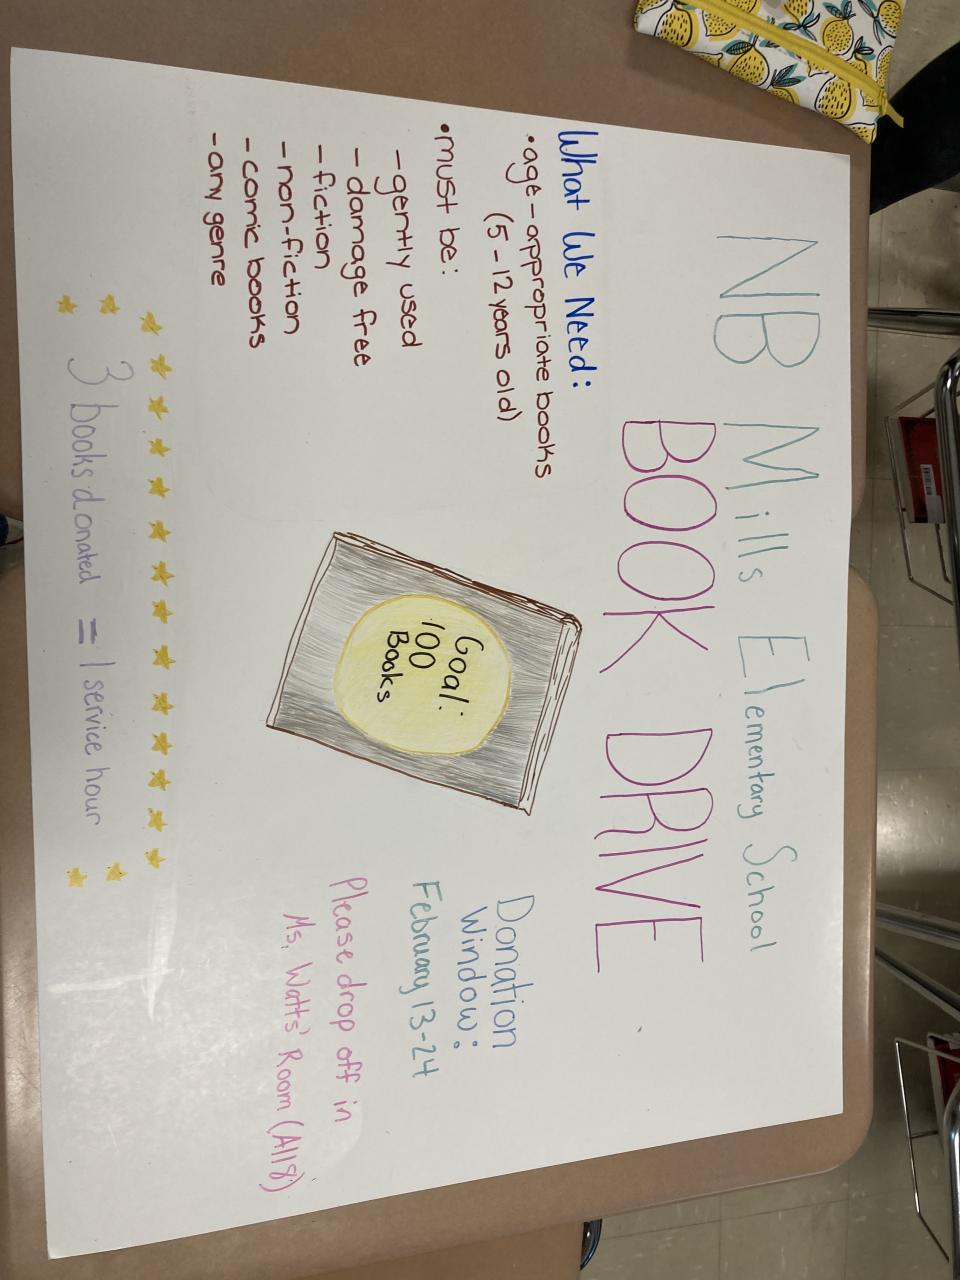 NB Mills Elementary School
BOOK DRIVE
What We Need:
• age-appropriate books
(5-12 years old)
• must be:
- gently used
- damage free
- fiction
- non-fiction
- comic books
- any genre
Goal:
100
Books
Donation
Window:
February 13-24
Please drop off in
Ms. Watts' Room (A118)
3 books donated = 1 service hour